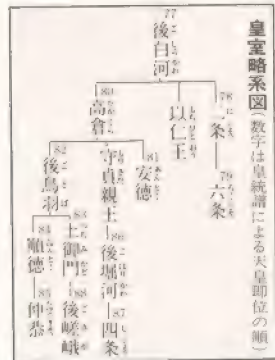 皇室略系図(数字は皇統譜による天皇即位の順)
77 後白河
78 二条―79 六条
以仁王
80 高倉
81 安徳
守貞親王―86 後堀河―87 四条
82 後鳥羽
83 土御門―88 後嵯峨
84 順徳―85 仲恭